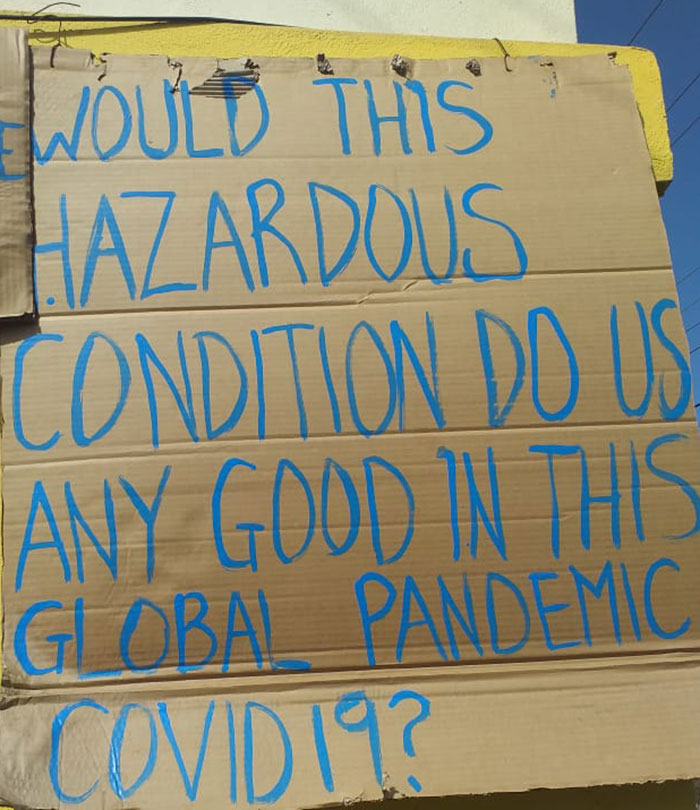 WOULD THIS
HAZARDOUS
CONDITION DO US
ANY GOOD IN THIS
GLOBAL PANDEMIC
COVID19?